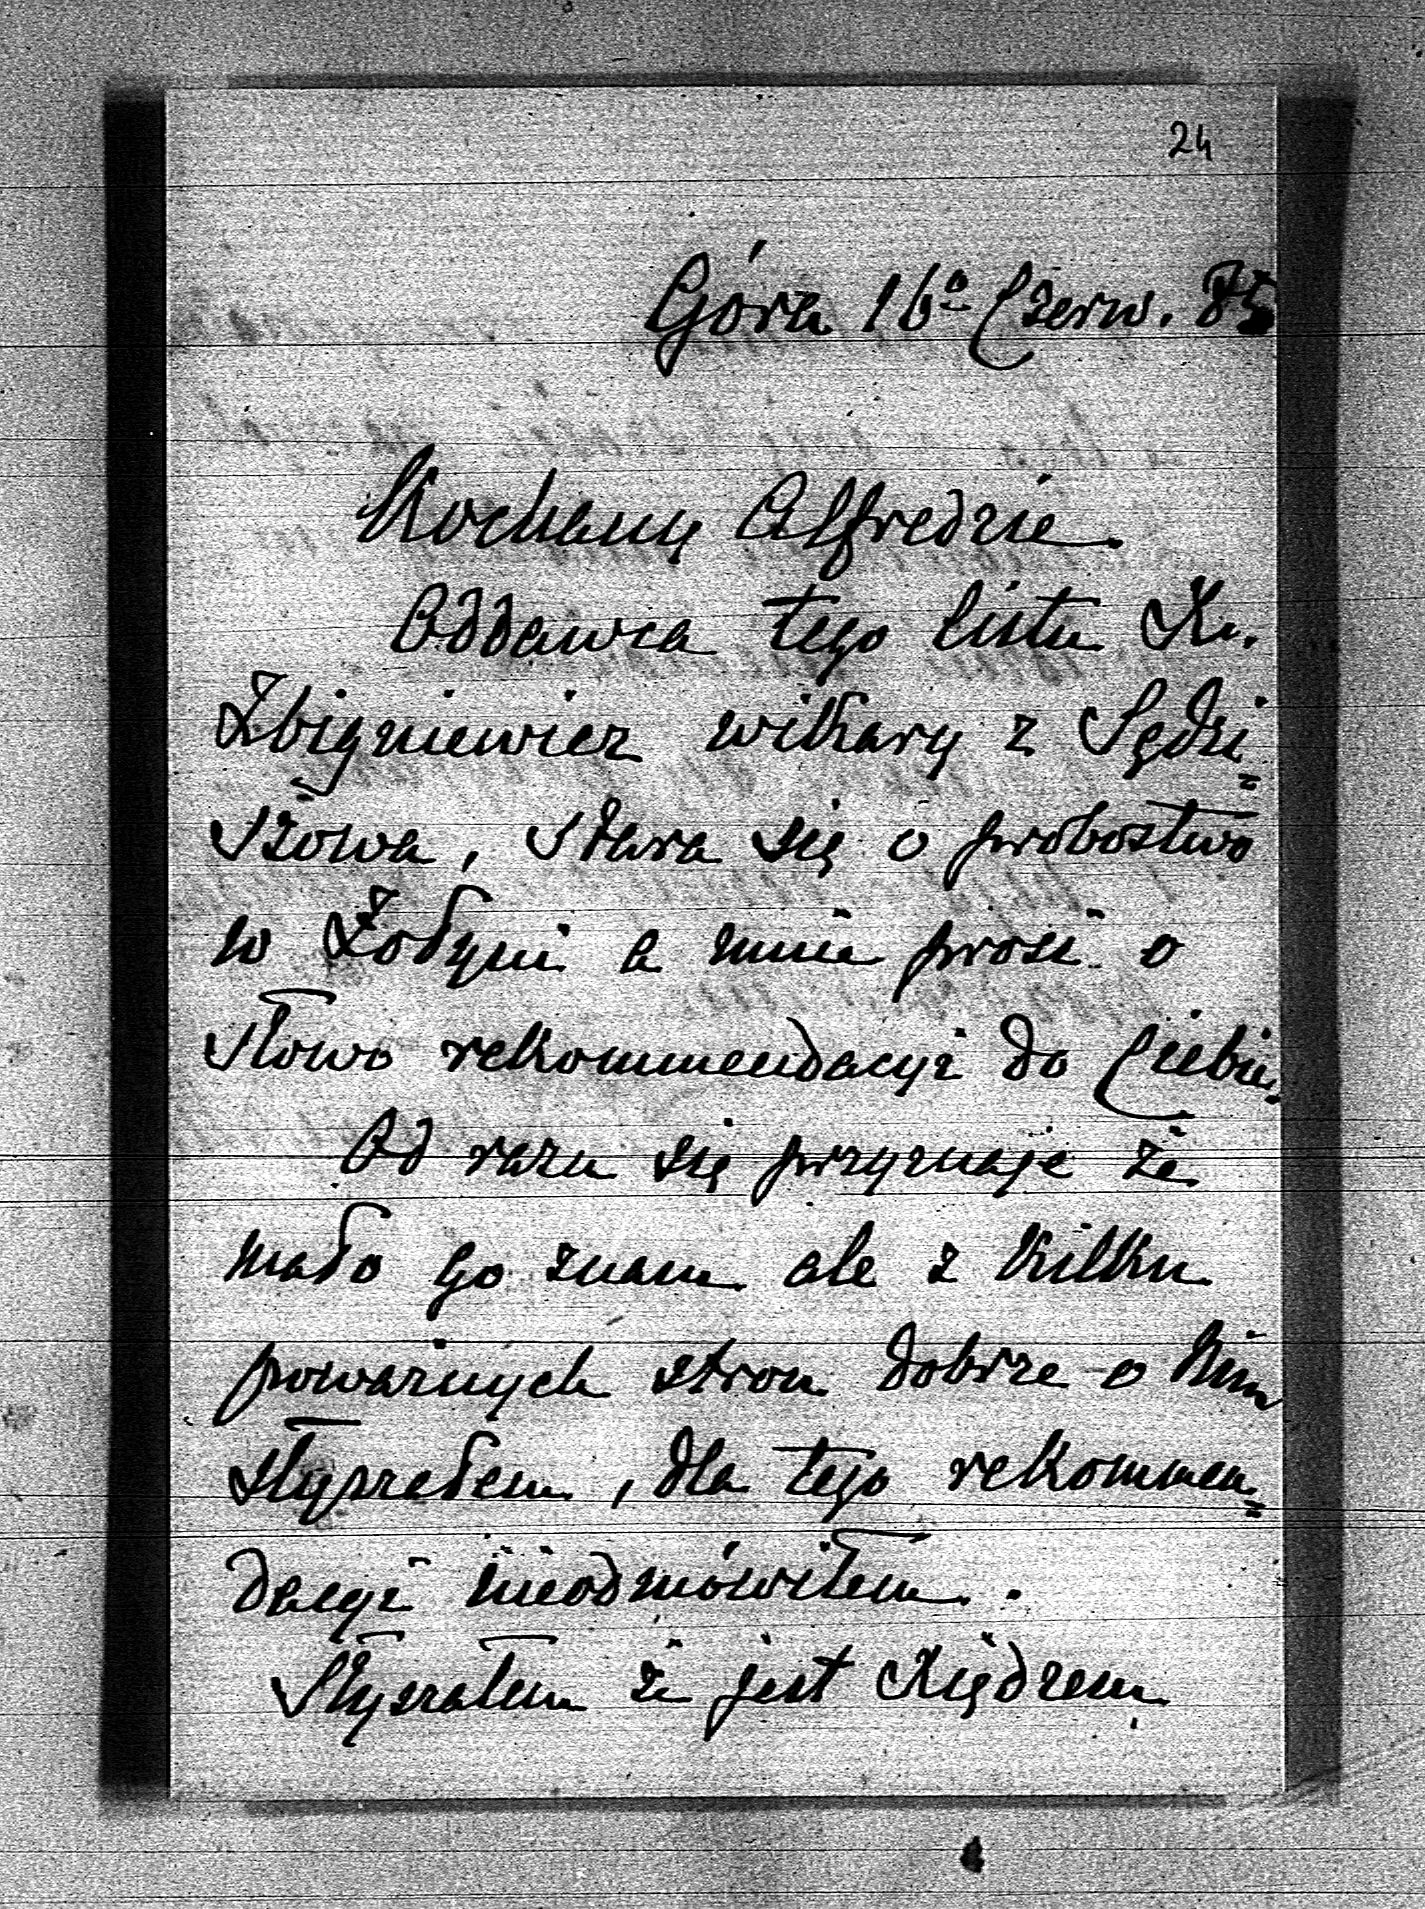 24
Góra 16º Czerw. 85
Kochany Alfredzie.
Oddawca tego listu Xu.
Zbigniewicz wikary z Sędzi=
szowa, stara się o probostwo
w Żołyni a mnie prosi o
słowo rekommendacyi do Ciebie.
Od razu się przyznaję że
mało go znam ale z kilku
poważnych stron dobrze o Nim
słyszałem, dla tego rekommen=
dacyi nieodmówiłem.
Słyszałem że jest Xiędzem